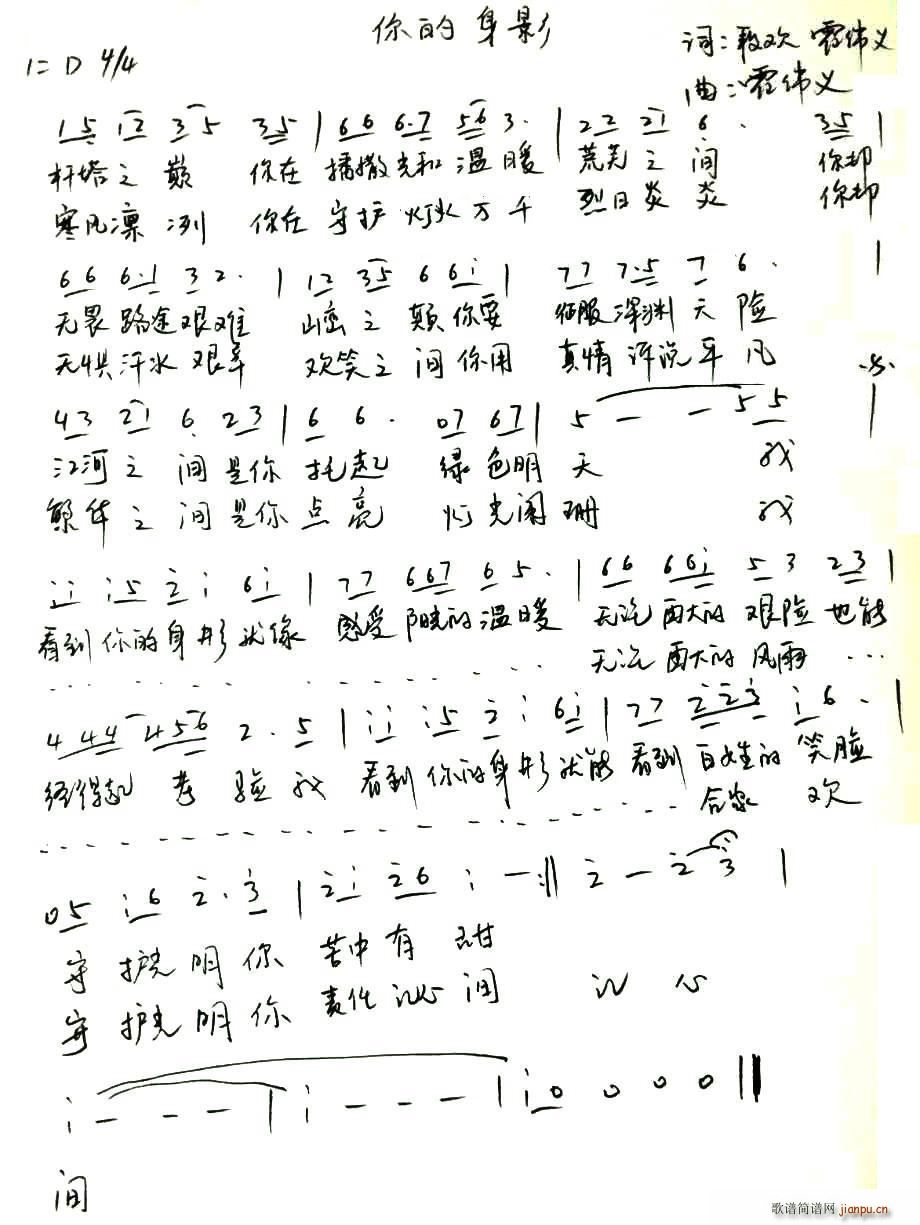 你的身影
词：段欢 霍伟义
1=D 4/4
曲：霍伟义
1 5 1 2 3 5 3 5 | 6 6 6·7 5 6 3· | 2 2 2 1 6· 3 5 |
杆塔之巅 你在播撒光和温暖 荒芜之间 你却
寒风凛冽 你在守护灯火万千 烈日炎炎 你却
6 6 6·1 3 2· | 1 2 3 5 6 6 i | 7 7 7·5 7 6· |
无畏路途艰难 山峦之颠你要 征服深渊天险
无惧汗水艰辛 欢笑之间你用 真情诉说平凡
4 3 2 1 6 2 3 | 6 6· 0 7 6 7 | 5 — — 5 5 |
江河之间是你托起 绿色明天 我
繁华之间是你点亮 灯光阑珊 我
i i i 5 2 i 6 i | 7 7 6 6 7 6 5· | 6 6 6 6 i 5 3 2 3 |
看到你的身形就像 感受阳光的温暖 无论再大的艰险也能
无论再大的风雨 ...
4 4 4 4 5 6 2· 5 | i i i 5 2 i 6 i | 7 7 2 2 3 i 6· |
经得起 考验我 看到你的身形就能看到百姓的笑脸
合家欢
0 5 i 6 2· 3 | 2 i 2 6 i — :‖ 2 — 2 3 |
守护光明你苦中有甜
守护光明你责任心间 心
i — — — | i — — — | i 0 0 0 0 ‖
间
歌谱简谱网
jianpu.cn